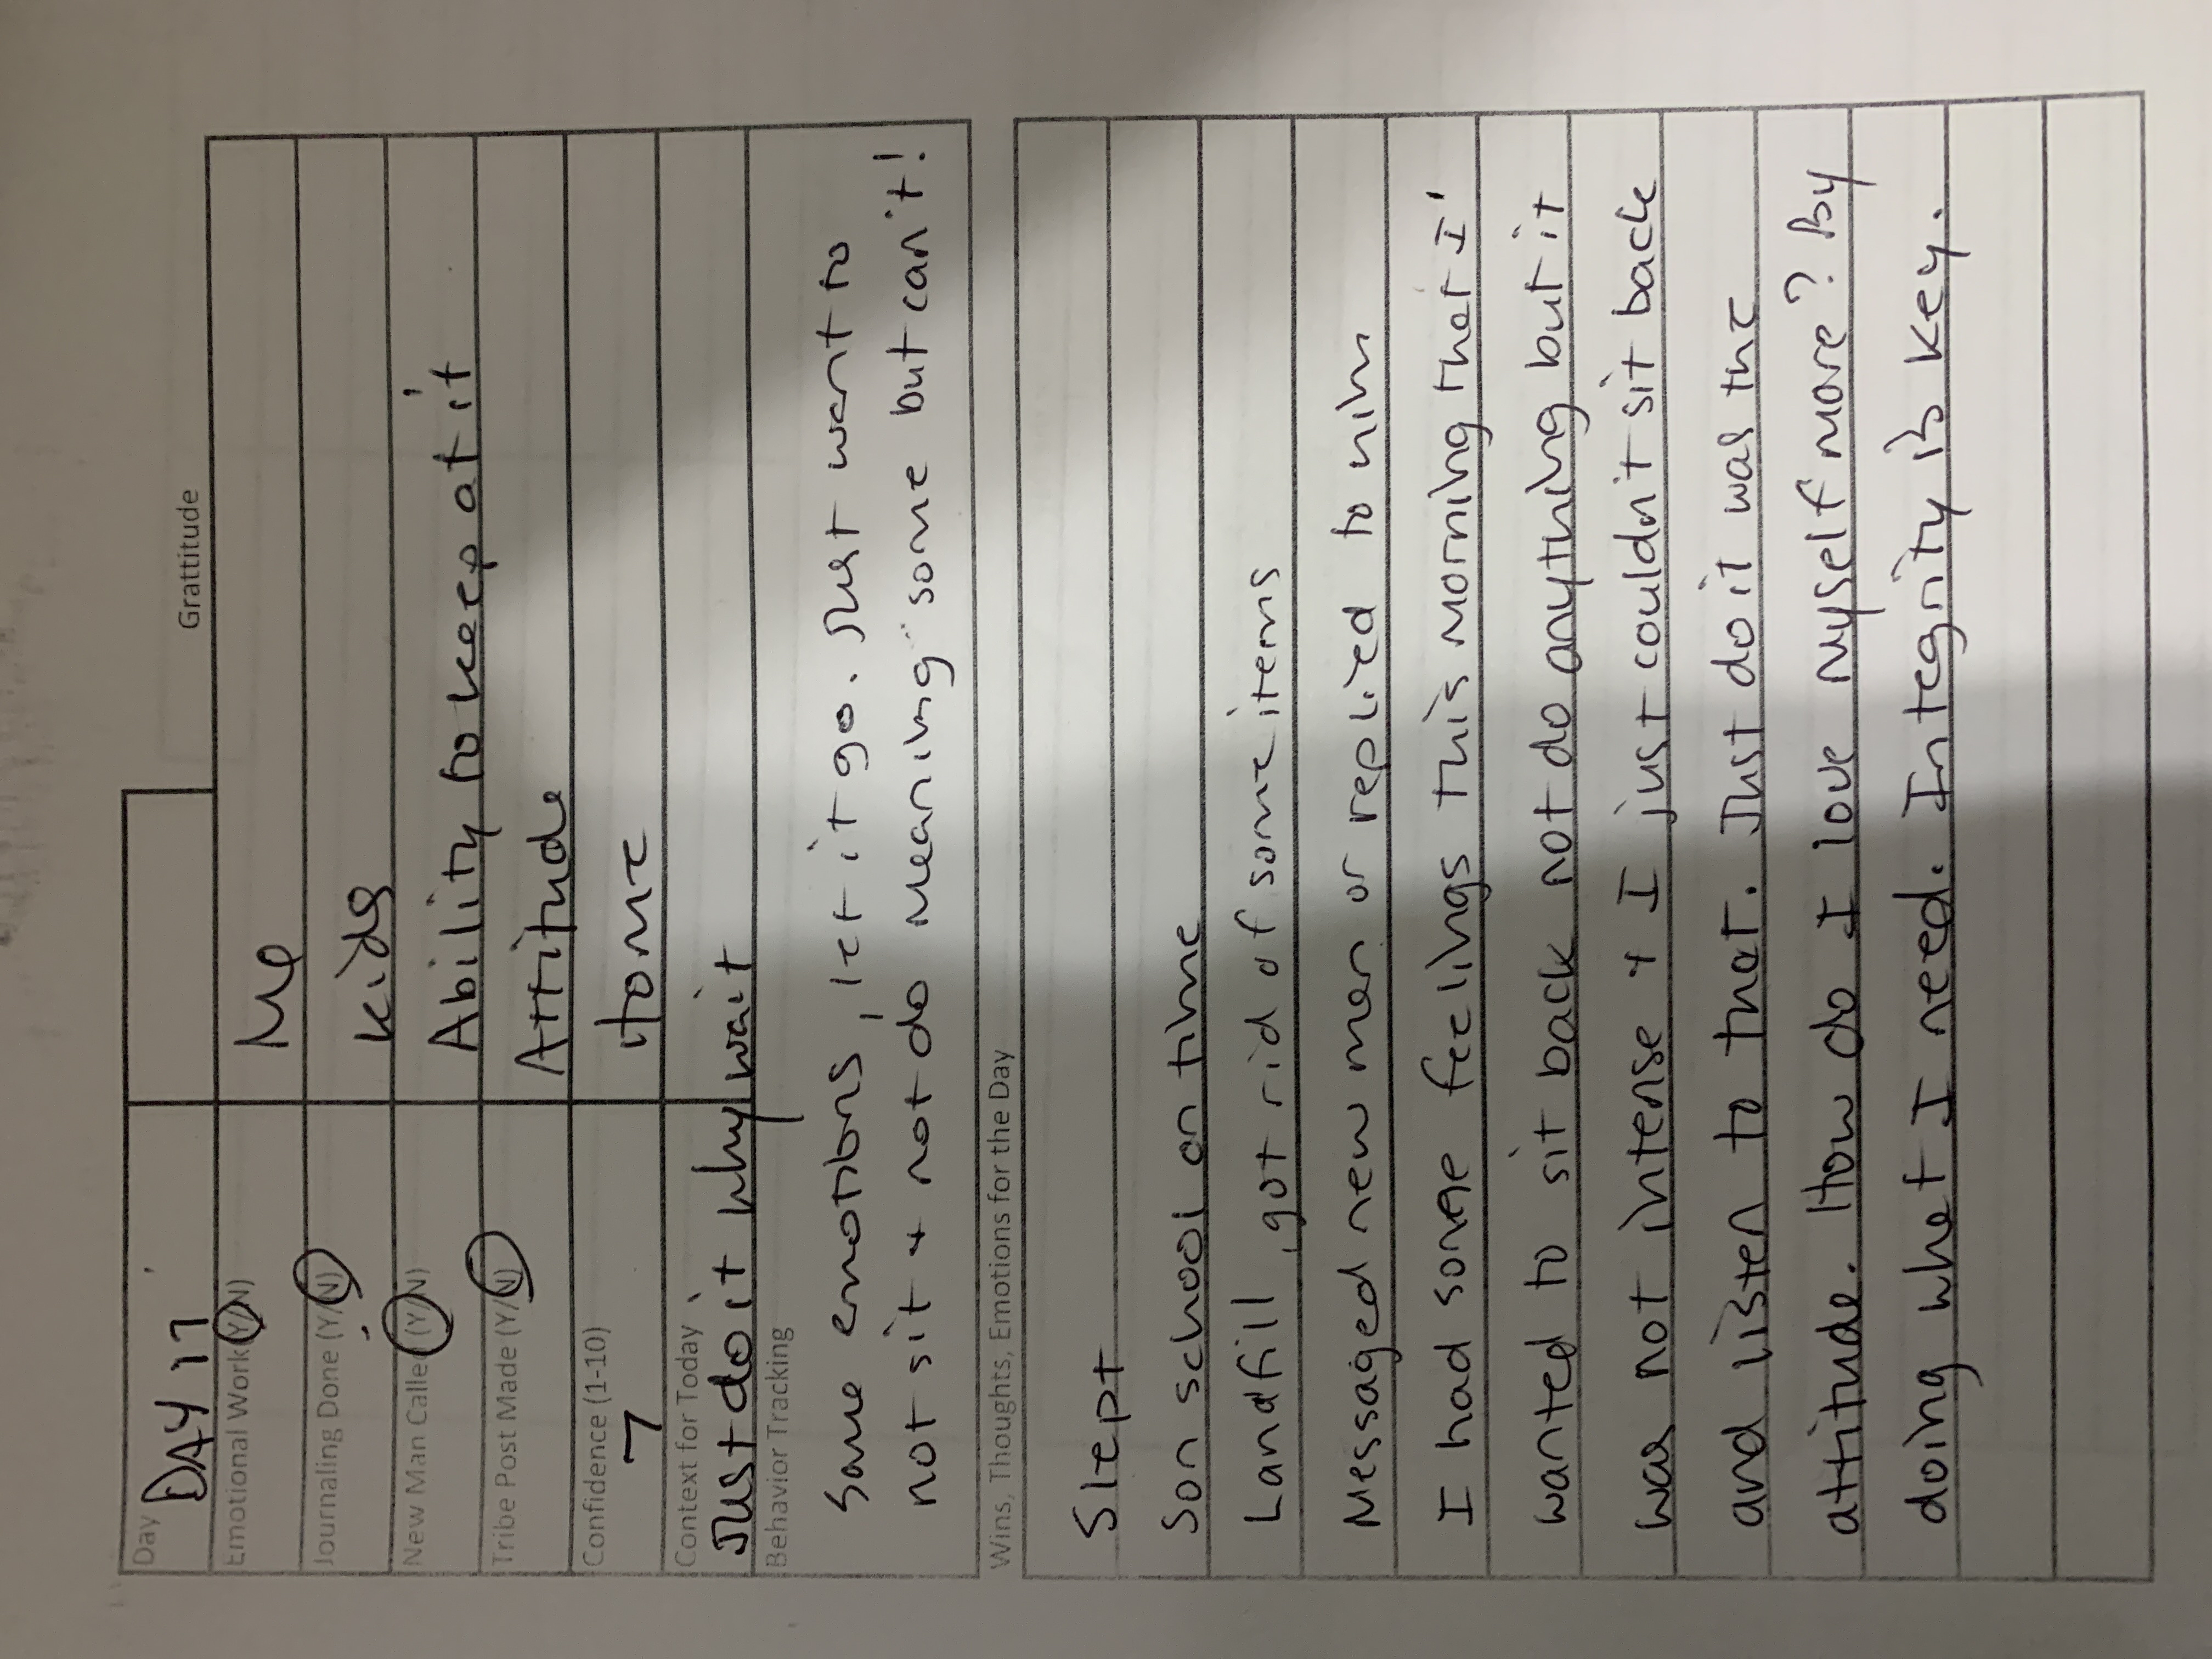 Day
DAY 17
Grattitude
Emotional Work (Y/N)
Me
Journaling Done (Y/N)
kids
New Man Called (Y/N)
Ability to keep at it
Tribe Post Made (Y/N)
Attitude
Confidence (1-10)
7
Home
Context for Today
Just do it why wait
Behavior Tracking
Some emotions, let it go. Just want to
not sit + not do meaning some but can't!
Wins, Thoughts, Emotions for the Day
Slept
Son school on time
Landfill, got rid of some items
Messaged new man or replied to him
I had some feelings this morning that I
wanted to sit back not do anything but it
was not intense + I just couldn't sit back
and listen to that. Just do it was the
attitude. How do I love myself more? By
doing what I need. Integrity is key.